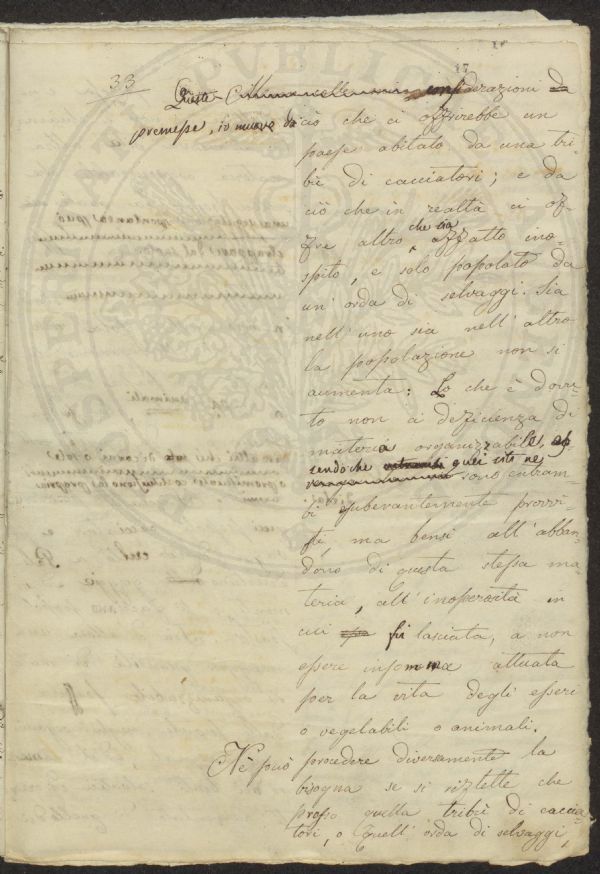 33
17
Queste considerazioni da
premesse, io muovo da ciò che ci offrirebbe un
paese abitato da una tri-
bù di cacciatori; e da
ciò che in realtà ci of-
fre altro che sia affatto ino-
spito, e solo popolato da
un' orda di selvaggi. Sia
nell' uno sia nell' altro
la popolazione non si
aumenta: Lo che è dovu-
to non a deficienza di
materia organizzabile, es-
sendoche entrambi quei siti ne
sono entram-
bi esuberantemente provvi-
sti, ma bensì all' abban-
dono di questa stessa ma-
teria, all' inoperosità in
cui fu lasciata, a non
essere insomma attuata
per la vita degli esseri
o vegetabili o animali.
Nè può procedere diversamente la
bisogna se si riflette che
presso quella tribù di caccia-
tori, o quell' orda di selvaggi,